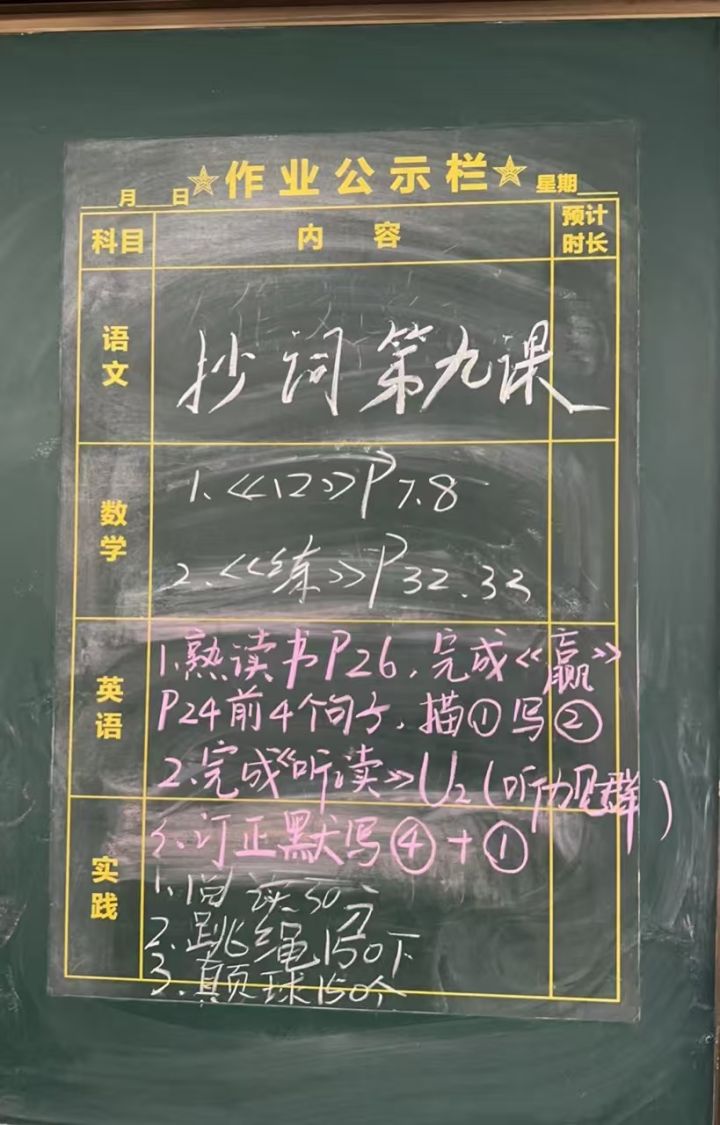 ___月___日 ☆作业公示栏☆ 星期___
科目 内容 预计时长
语文
抄词 第九课
数学
1、《12》P7、8
2、《练》P32、33
英语
1、熟读书P26，完成《赢》
P24前4个句子，描①写②
2、完成《听读》U2(听力见群)
3、订正默写④+①
实践
1、阅读30分
2、跳绳150下
3、颠球150个